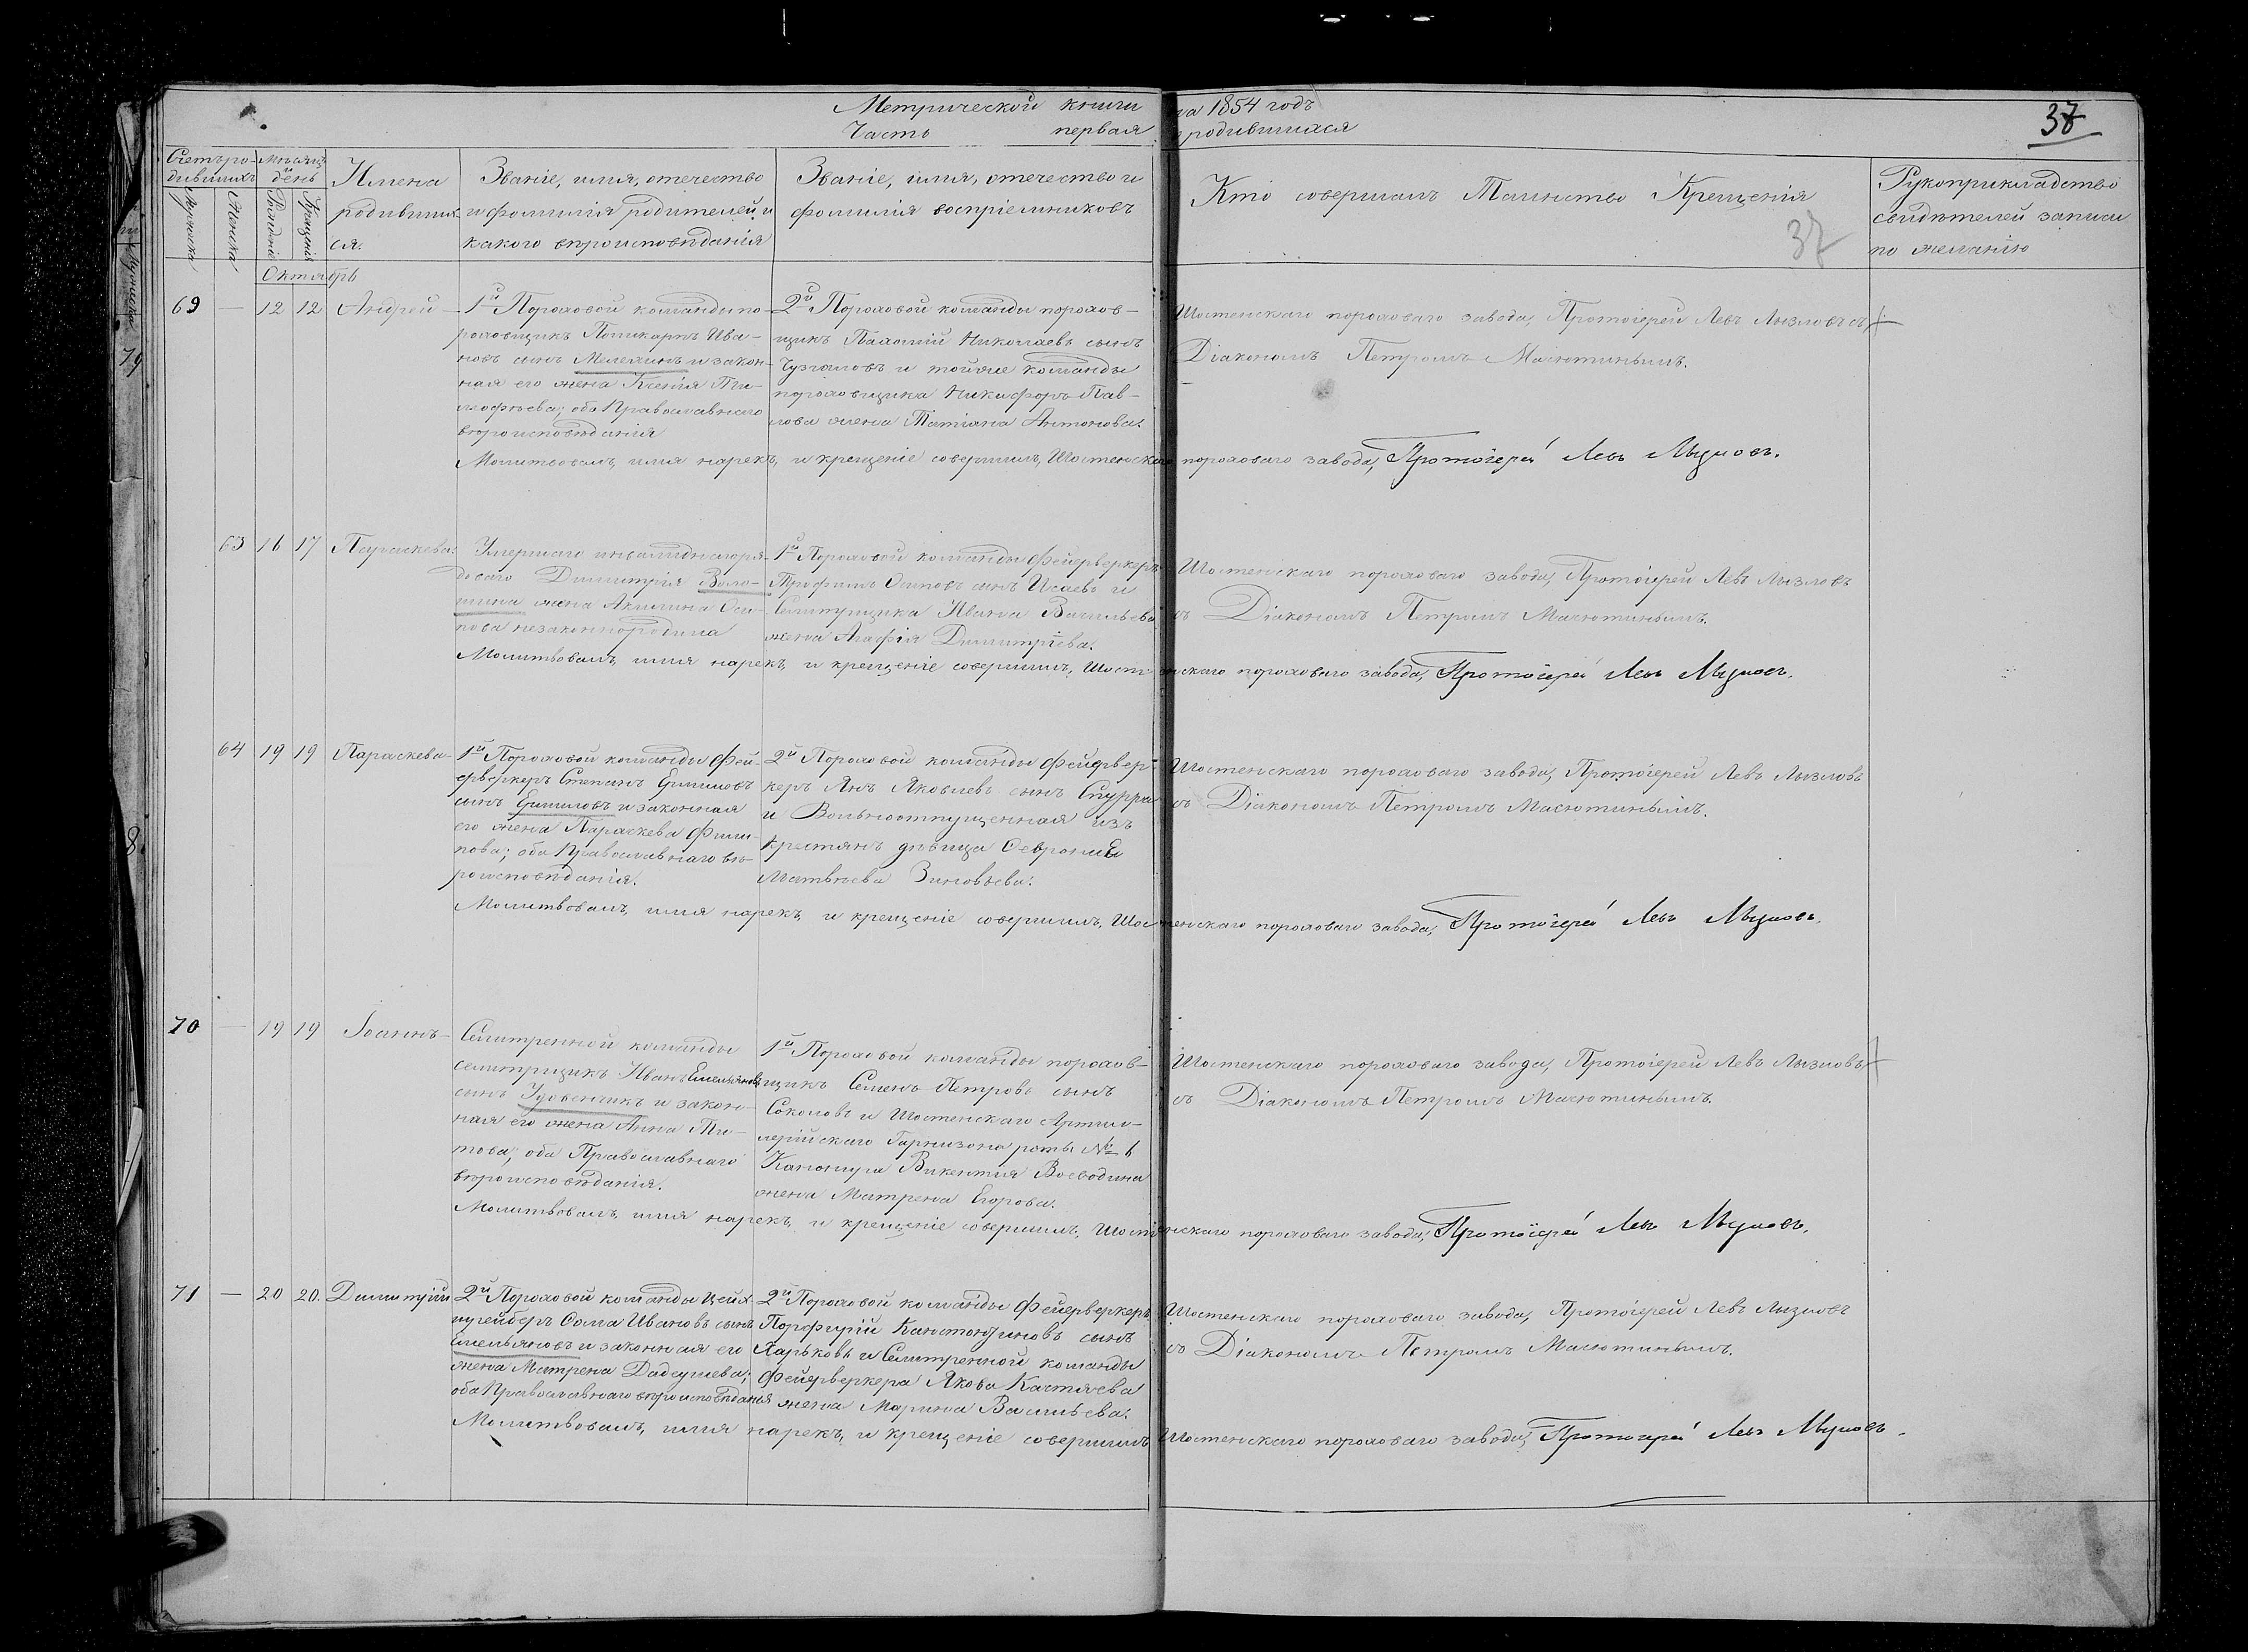 Метрической книги на 1854 годъ
Часть первая о родившихся
37
Счетъ родившихъ
Мѣсяцъ и день
Имена родившихся.
Званіе, имя, отечество
и фамилія родителей, и
какого вѣроисповѣданія
Званіе, имя, отечество и
фамилія воспріемниковъ
Кто совершалъ Таинство Крещенія
37
Рукоприкладство
свидѣтелей записи
по желанію
Мужеска
Женска
Рожденія
Крещенія
Октябрь
69 — 12 12 Андрей
1й Пороховой команды по-
роховщикъ Поликарпъ Ива-
новъ сынъ Мележинъ и закон-
ная его жена Ксенія Ти-
мофѣева; оба Православнаго
вѣроисповѣданія
2й Пороховой команды порохов-
щикъ Пахомій Николаевъ сынъ
и тойже команды
пороховщика Никифора Пав-
лова жена Татіана Антонова.
Шостенскаго пороховаго завода, Протоіерей Левъ Лызловъ съ
Діакономъ Петромъ Масютинымъ.
Молитвовалъ, имя нарекъ, и крещеніе совершилъ, Шостенскаго пороховаго завода, Протоіерей Левъ Лызловъ.
63 16 17 Параскева
Умершаго инвалиднаго ря-
доваго Димитрія Воло-
шина жена Акилина Оси-
пова незаконнородила
1й Пороховой команды Фейерверкеръ
Трофимъ Осиповъ сынъ Исаевъ и
Селитрщика Ивана Васильева
жена Агафія Димитріева.
Шостенскаго пороховаго завода, Протоіерей Левъ Лызловъ
съ Діакономъ Петромъ Масютинымъ.
Молитвовалъ, имя нарекъ, и крещеніе совершилъ, Шостенскаго пороховаго завода, Протоіерей Левъ Лызловъ.
64 19 19 Параскева
1й Пороховой команды Фей-
ерверкеръ Степанъ Ермиловъ
сынъ Ермиловъ и законная
его жена Параскева Фили-
пова; оба Православнаго вѣ-
роисповѣданія.
2й Пороховой команды Фейервер-
керъ Янъ Яковлевъ сынъ Спурра
и Вольноотпущенная изъ
крестянъ дѣвица Февронія
Матвѣева Зиновьева.
Шостенскаго пороховаго завода, Протоіерей Левъ Лызловъ
съ Діакономъ Петромъ Масютинымъ.
Молитвовалъ, имя нарекъ, и крещеніе совершилъ, Шостенскаго пороховаго завода, Протоіерей Левъ Лызловъ.
70 — 19 19 Іоаннъ
Селитренной команды
селитрщикъ Иванъ Емельяновъ
сынъ Удовенчикъ и закон-
ная его жена Анна Ти-
това; оба Православнаго
вѣроисповѣданія.
1й Пороховой команды порохов-
щикъ Семенъ Петровъ сынъ
Соколовъ и Шостенскаго Артил-
лерійскаго Гарнизона роты № 6
Канонира Викентія Воеводина
жена Матрена Егорова.
Шостенскаго пороховаго завода, Протоіерей Левъ Лызловъ
съ Діакономъ Петромъ Масютинымъ.
Молитвовалъ, имя нарекъ, и крещеніе совершилъ, Шостенскаго пороховаго завода, Протоіерей Левъ Лызловъ.
71 — 20 20. Димитрій
2й Пороховой команды Цейх-
шрейберъ Сома Ивановъ сынъ
Емельяновъ и законная его
жена Матрена;
оба Православнаго вѣроисповѣданія
2й Пороховой команды Фейерверкеръ
Порфирій Канстонтиновъ сынъ
Харьковъ и Селитренной команды
Фейерверкера Якова Кастяева
жена Марина Васильева.
Шостенскаго пороховаго завода, Протоіерей Левъ Лызловъ
съ Діакономъ Петромъ Масютинымъ.
Молитвовалъ, имя нарекъ, и крещеніе совершилъ Шостенскаго пороховаго завода, Протоіерей Левъ Лызловъ.